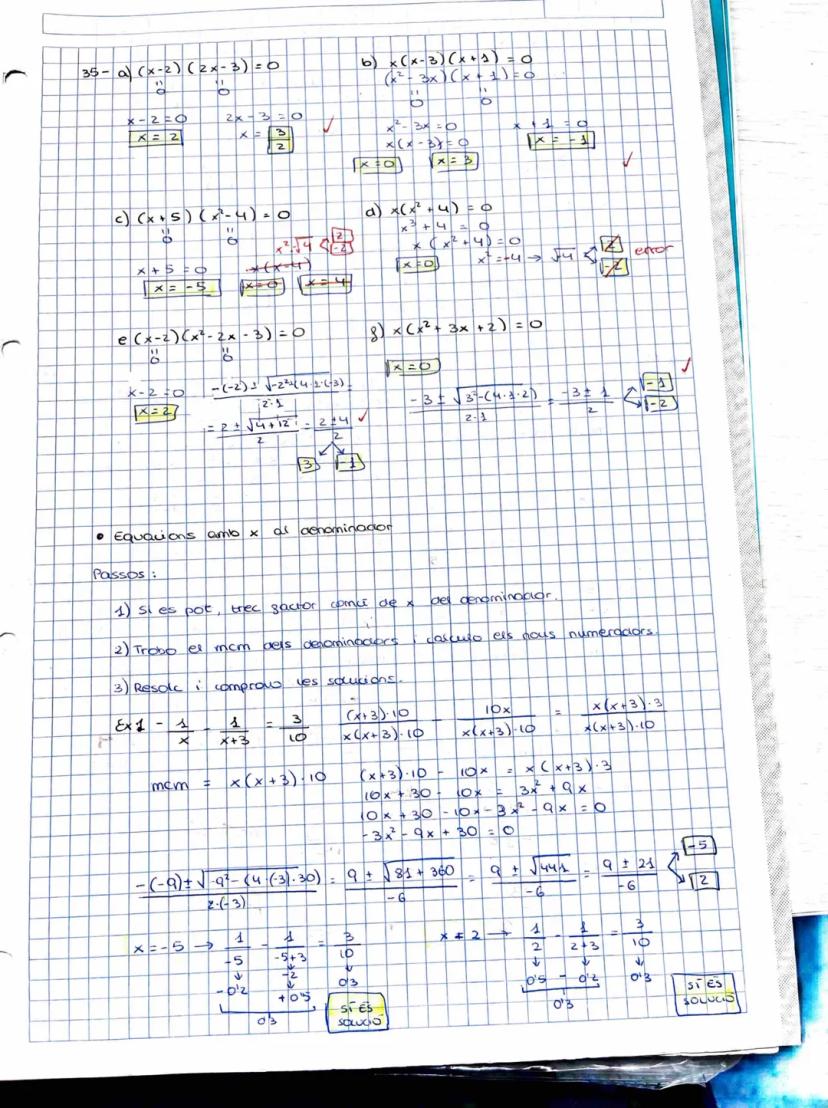 35- a) (x-2)(2x-3)=0
x-2=0 2x-3=0
x=2 x=3/2 ✓
b) x(x-3)(x+1)=0
(x²-3x)(x+1)=0
x²-3x=0 x+1=0
x(x-3)=0 x=-1
x=0 x=3 ✓
c) (x+5)(x²-4)=0
x²=√4 2 -2
x+5=0 x(x-4)
x=-5 x=0 x=4
d) x(x²+4)=0
x³+4=0
x(x²+4)=0
x=0 x²=-4 → √4 2 -2 error
e (x-2)(x²-2x-3)=0
x-2=0 (-(-2)±√-2²-(4·1·(-3))/(2·1) =
x=2 = (2±√4+12)/2 = (2±4)/2 ✓
3 -1
f) x(x²+3x+2)=0
x=0
(-3±√3²-(4·1·2))/(2·1) = (-3±1)/2 -1 -2 ✓
• Equacions amb x al denominador
Passos:
1) Si es pot, trec factor comú de x del denominador.
2) Trobo el mcm dels denominadors i calculo els nous numeradors.
3) Resolc i comprovo les solucions.
Ex1 - 1/x - 1/(x+3) = 3/10 (x+3)·10/(x(x+3)·10) - 10x/(x(x+3)·10) = x(x+3)·3/(x(x+3)·10)
mcm = x(x+3)·10 (x+3)·10 - 10x = x(x+3)·3
10x+30-10x = 3x²+9x
10x+30-10x-3x²-9x=0
-3x²-9x+30=0
(-(-9)±√-9²-(4·(-3)·30))/(2·(-3)) = (9±√81+360)/-6 = (9±√441)/-6 = (9±21)/-6 -5 2
x=-5 → 1/-5 - 1/(-5+3) = 3/10
-2
-0'2 +0'5 0'3
0'3
SÍ ÉS
SOLUCIÓ
x=2 → 1/2 - 1/(2+3) = 3/10
0'5 - 0'2 0'3
0'3
SÍ ÉS
SOLUCIÓ